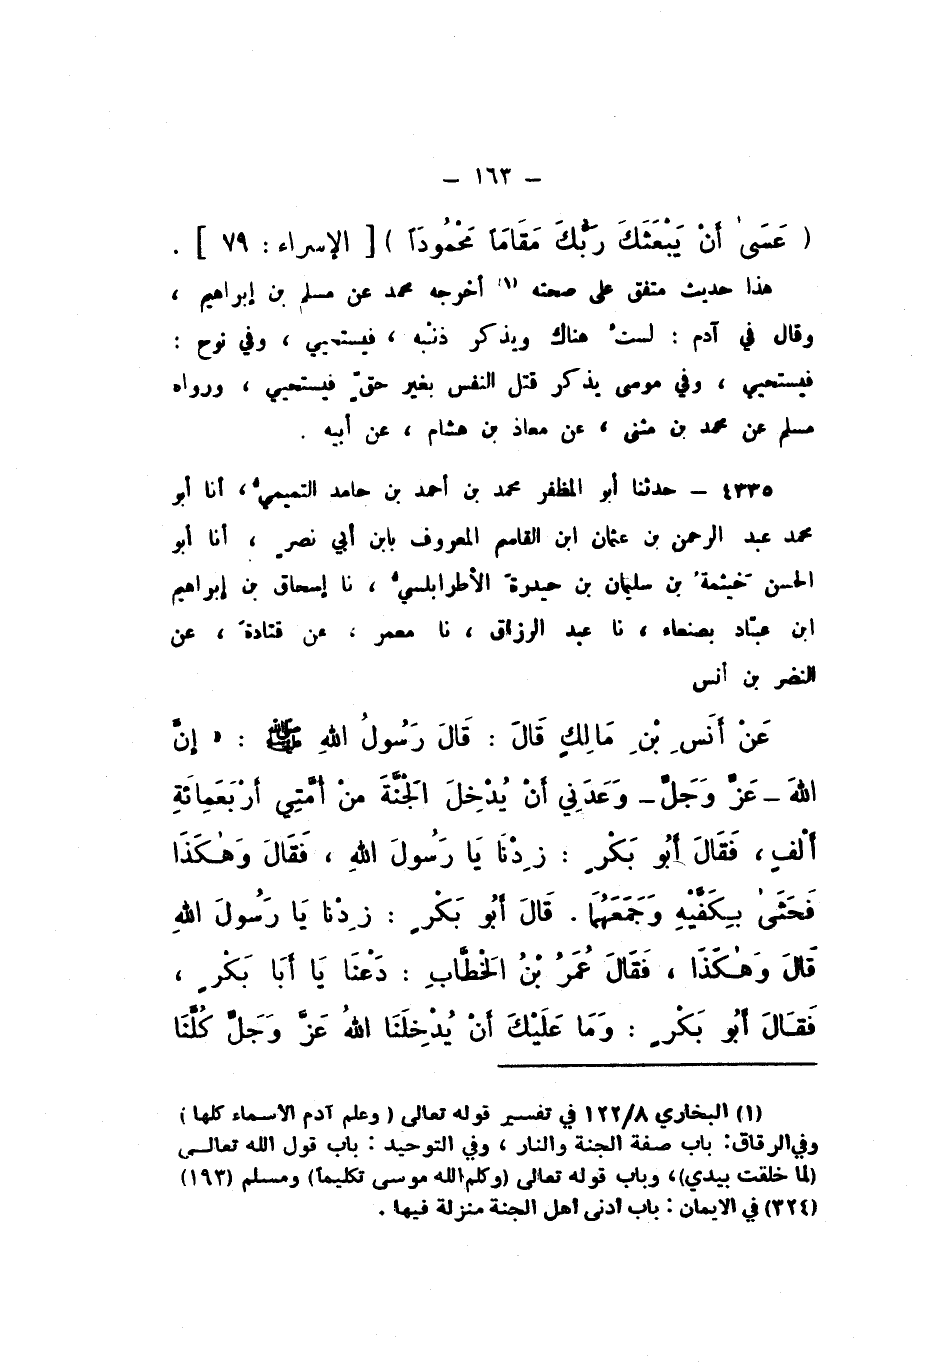 – ١٦٣ –
( عَسَىٰ أَنْ يَبْعَثَكَ رَبُّكَ مَقَامَاً مَحْمُودَاً ) [ الإسراء : ٧٩ ] .
هذا حديث متفق على صحته (١) أخرجه محمد عن مسلم بن إبراهيم ،
وقال في آدم : لستُ هناك ويذكر ذنْبه ، فيستحيي ، وفي نوح :
فيستحيي ، وفي موسى يذكر قتل النفس بغير حقٍّ فيستحيي ، ورواه
مسلم عن محمد بن مثنى ، عن معاذ بن هشام ، عن أبيه .
٤٣٣٥ – حدثنا أبو المظفر محمد بن أحمد بن حامد التميميُّ ، أنا أبو
محمد عبد الرحمن بن عثمان ابن القاسم المعروف بابن أبي نصرٍ ، أنا أبو
الحسن خَيثمةُ بن سليمان بن حيدرةَ الأطرابلسيُّ ، نا إسحاق بن إبراهيم
ابن عبّاد بصنعاء ، نا عبد الرزاق ، نا معمر ، عن قتادةَ ، عن
النضر بن أنس
عَنْ أَنَسِ بْنِ مَالِكٍ قَالَ : قَالَ رَسُولُ اللهِ ﷺ : « إِنَّ
اللهَ – عَزَّ وَجَلَّ – وَعَدَنِي أَنْ يُدْخِلَ الْجَنَّةَ مِنْ أُمَّتِي أَرْبَعَمِائَةِ
أَلْفٍ ، فَقَالَ أَبُو بَكْرٍ : زِدْنَا يَا رَسُولَ اللهِ ، فَقَالَ وَهٰكَذَا
فَحَثَىٰ بِكَفَّيْهِ وَجَمَعَهُمَا . قَالَ أَبُو بَكْرٍ : زِدْنَا يَا رَسُولَ اللهِ
قَالَ وَهٰكَذَا ، فَقَالَ عُمَرُ بْنُ الْخَطَّابِ : دَعْنَا يَا أَبَا بَكْرٍ ،
فَقَالَ أَبُو بَكْرٍ : وَمَا عَلَيْكَ أَنْ يُدْخِلَنَا اللهُ عَزَّ وَجَلَّ كُلَّنَا
(١) البخاري ١٢٢/٨ في تفسير قوله تعالى ( وعلم آدم الاسماء كلها )
وفي الرقاق: باب صفة الجنة والنار ، وفي التوحيد : باب قول الله تعالى
(لما خلقت بيدي)، وباب قوله تعالى (وكلم الله موسى تكليماً) ومسلم (١٩٣)
(٣٢٤) في الايمان : باب أدنى أهل الجنة منزلة فيها .